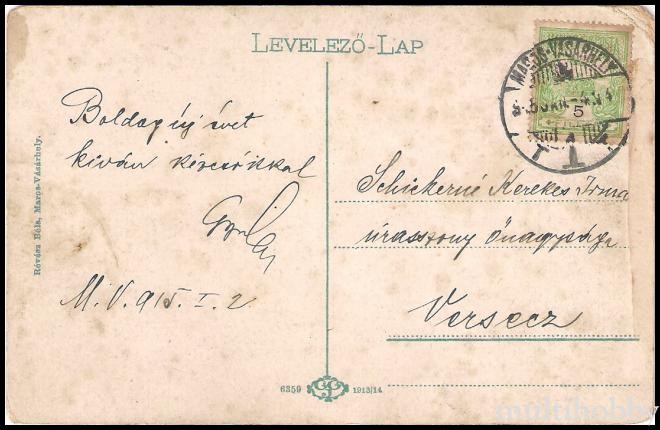 LEVELEZŐ-LAP
MAROS-VÁSÁRHELY
5
Boldog új évet
kiván
Schickerné Kerekes Irma
úrasszony őnagysága
Versecz
M.V. 915. I. 2.
Révész Béla, Maros-Vásárhely.
6359 1913/14
multihobby